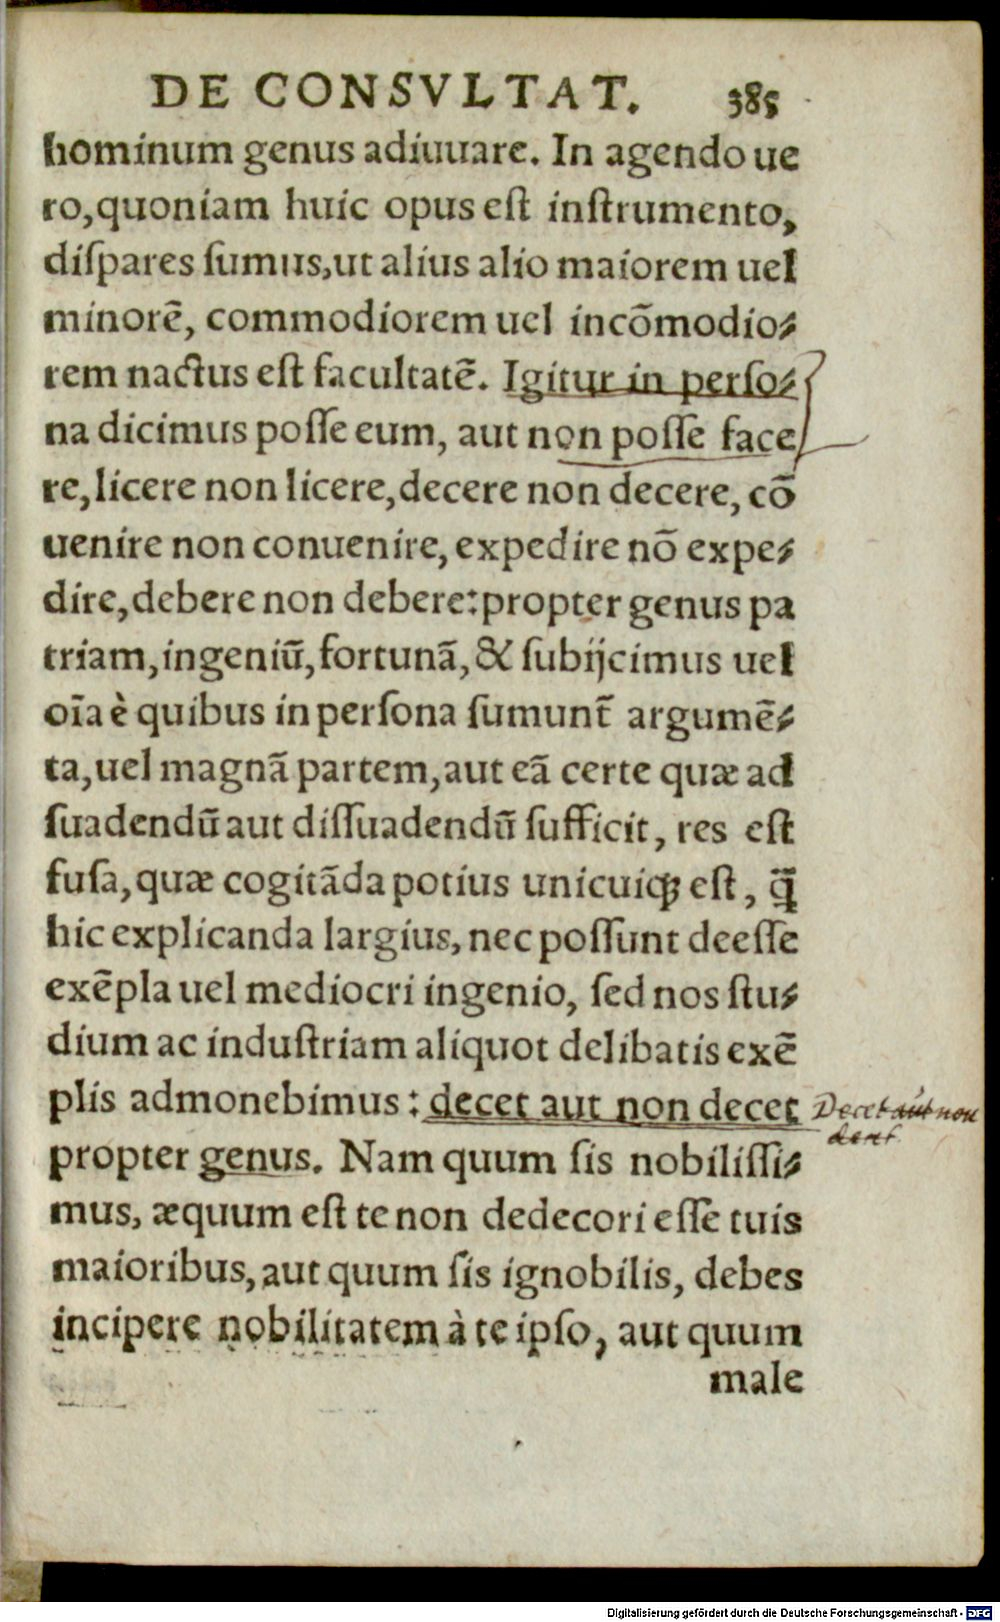 DE CONSVLTAT. 385
hominum genus adiuuare. In agendo ue
ro, quoniam huic opus est instrumento,
dispares sumus, ut alius alio maiorem uel
minorē, commodiorem uel incōmodio⸗
rem nactus est facultatē. Igitur in perso⸗
na dicimus posse eum, aut non posse face
re, licere non licere, decere non decere, cō
uenire non conuenire, expedire nō expe⸗
dire, debere non debere: propter genus pa
triam, ingeniū, fortunā, & subijcimus uel
oīa è quibus in persona sumunt̄ argumē⸗
ta, uel magnā partem, aut eā certe quæ ad
suadendū aut dissuadendū sufficit, res est
fusa, quæ cogitāda potius unicuiqꝫ est, q̄
hic explicanda largius, nec possunt deesse
exēpla uel mediocri ingenio, sed nos stu⸗
dium ac industriam aliquot delibatis exē
plis admonebimus: decet aut non decet
Decet aut non
decet
propter genus. Nam quum sis nobilissi⸗
mus, æquum est te non dedecori esse tuis
maioribus, aut quum sis ignobilis, debes
incipere nobilitatem à te ipso, aut quum
male
Digitalisierung gefördert durch die Deutsche Forschungsgemeinschaft - DFG